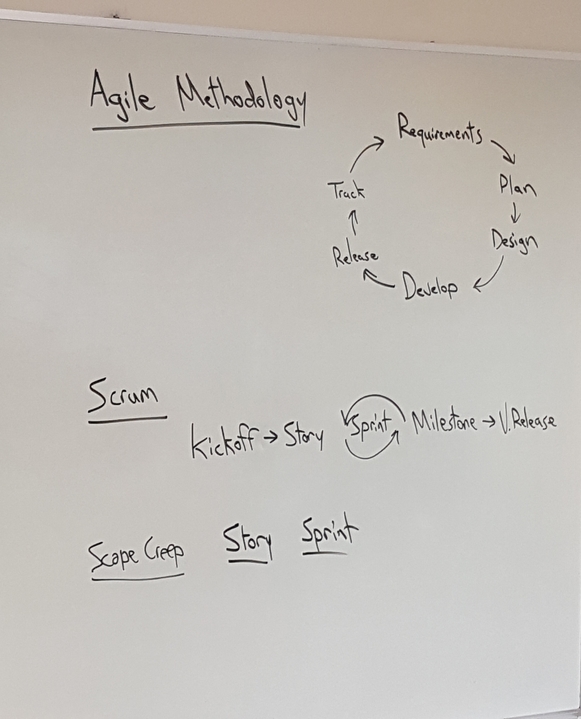 Agile Methodology
Requirements
Plan
Design
Develop
Release
Track
Scrum
Kickoff → Story Sprint Milestone → V.Release
Scope Creep Story Sprint